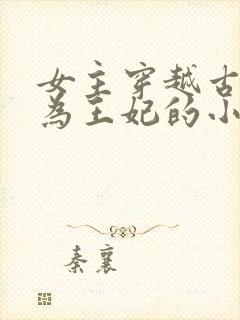 女主穿越古
为王妃的小
秦襄